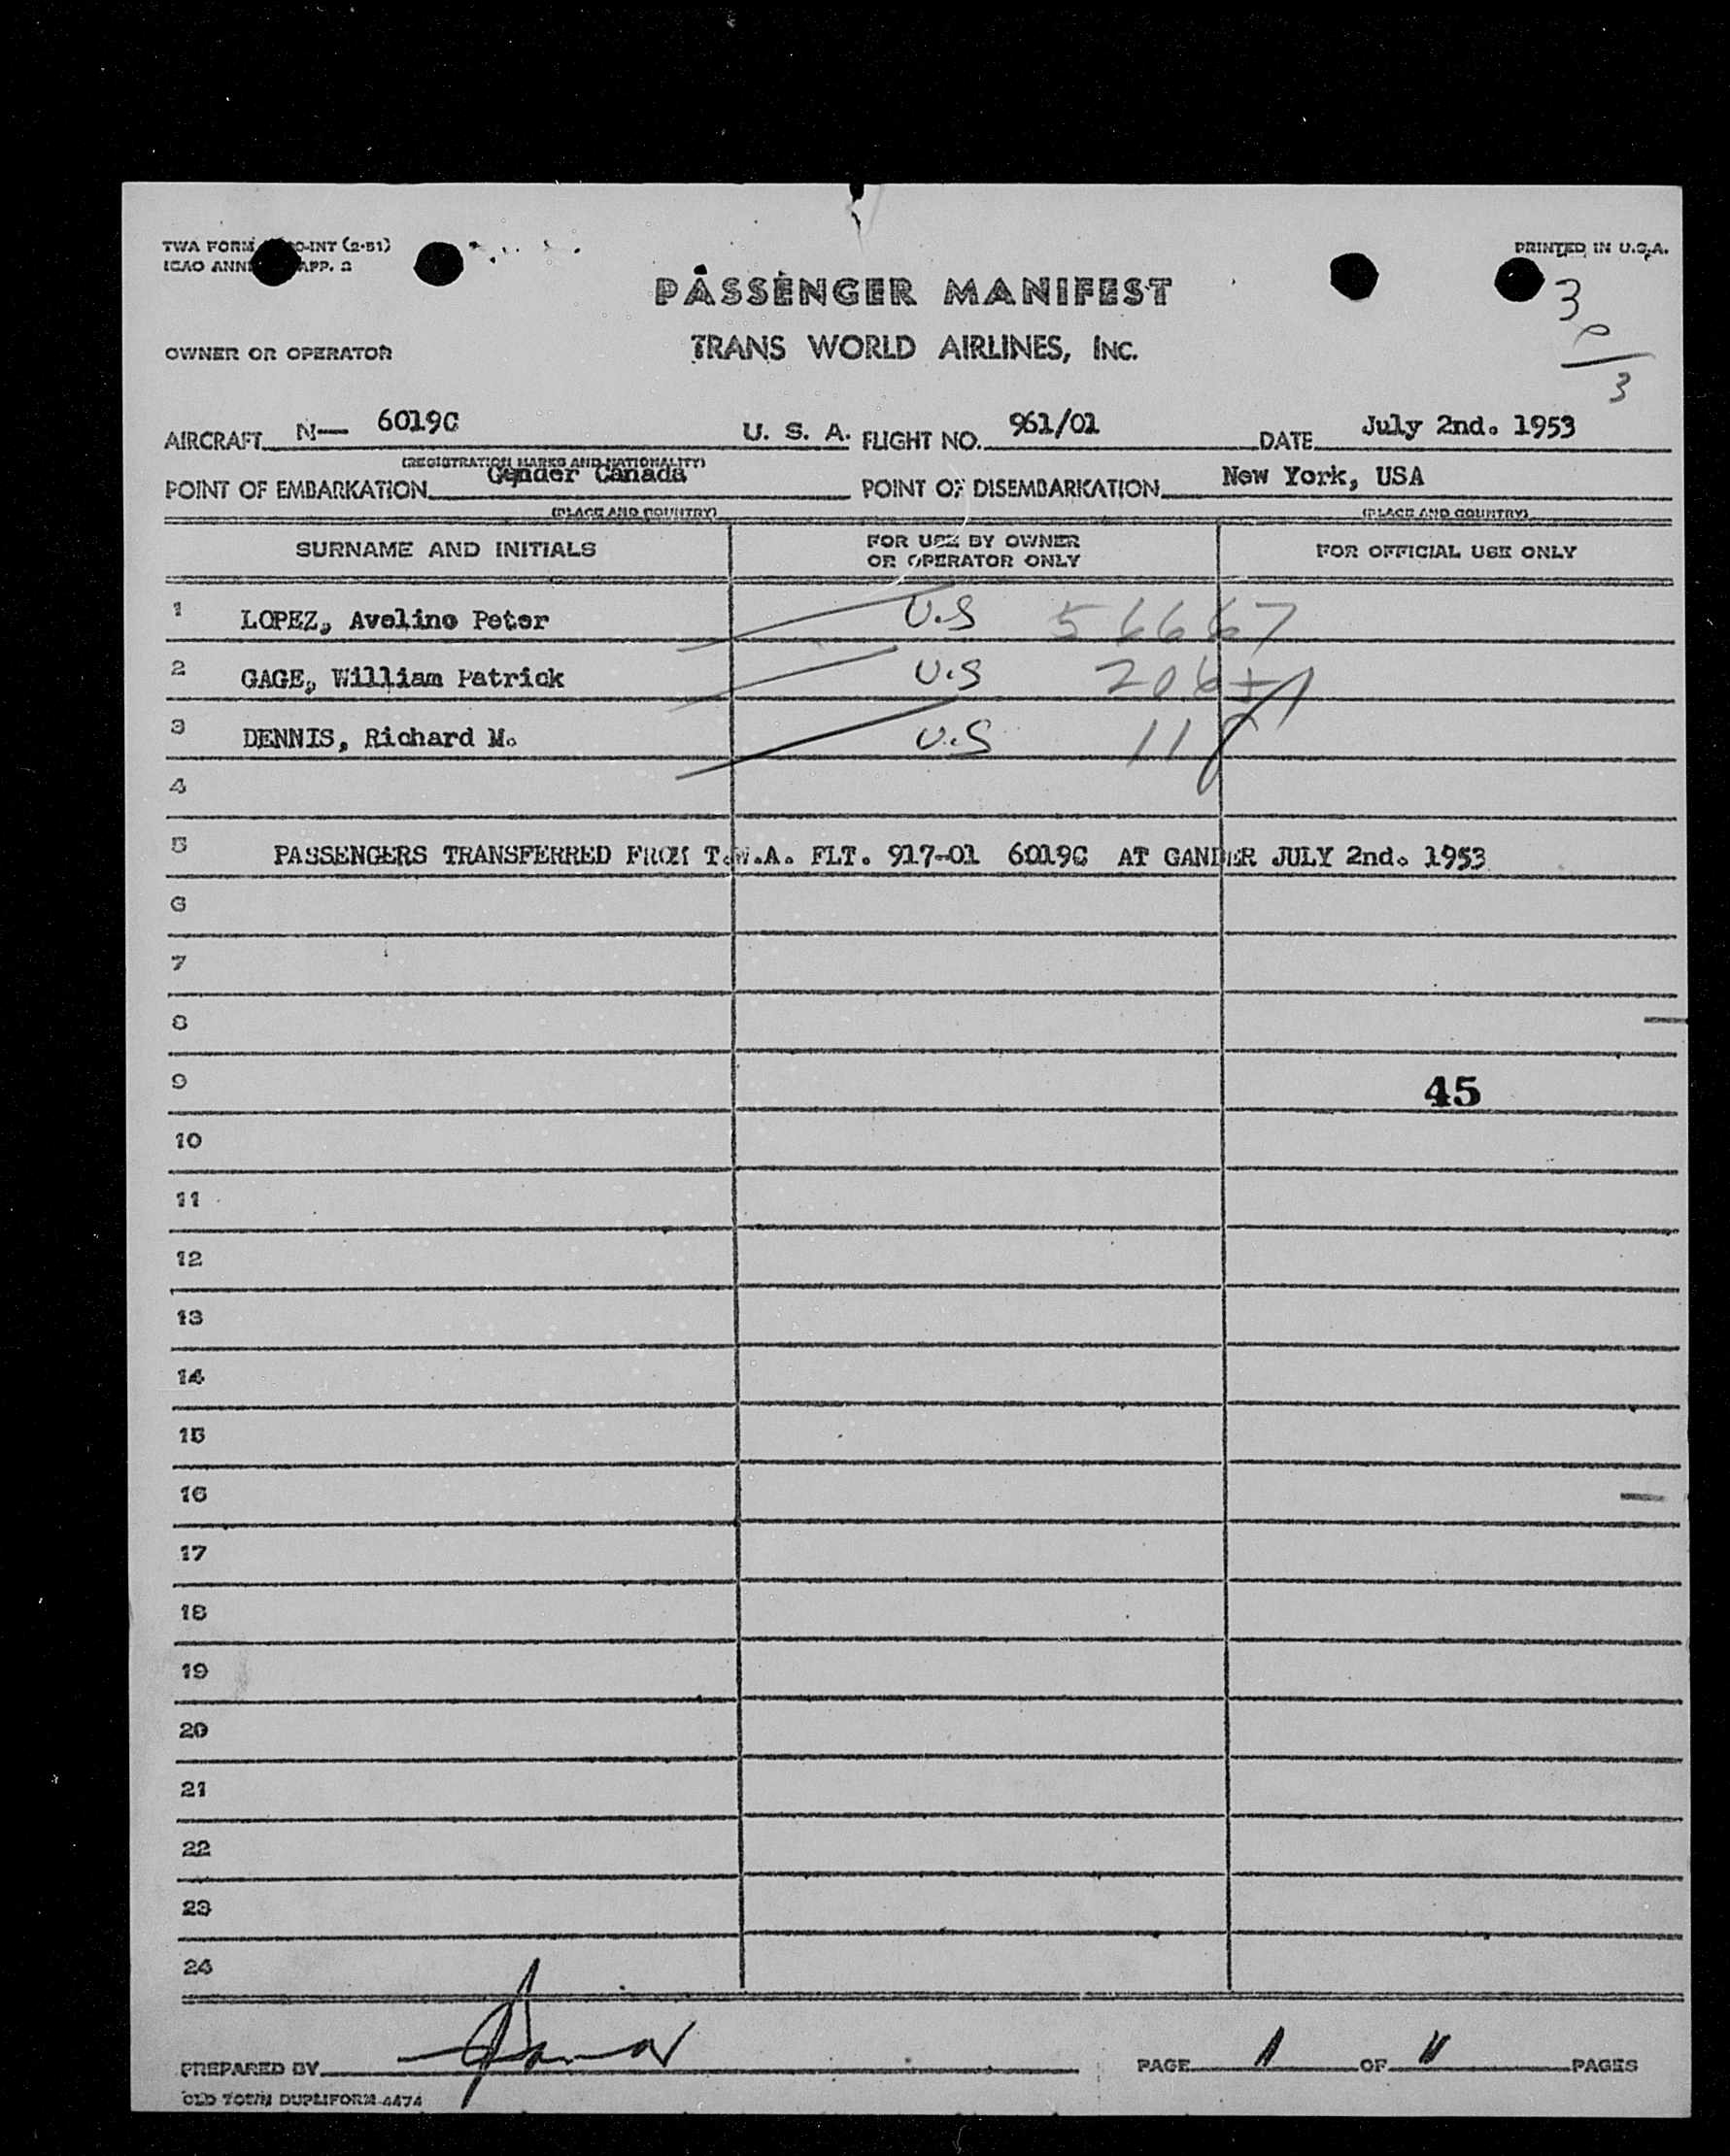 TWA FORM O-INT (2-51)
PRINTED IN U.S.A.
ICAO ANNE APP. 2
PASSENGER MANIFEST
3
0
3
OWNER OR OPERATOR
TRANS WORLD AIRLINES, INC.
AIRCRAFT N— 6019C U. S. A. FLIGHT NO. 961/01 DATE July 2nd. 1953
(REGISTRATION MARKS AND NATIONALITY)
POINT OF EMBARKATION Gander Canada POINT OF DISEMBARKATION New York, USA
(PLACE AND COUNTRY) (PLACE AND COUNTRY)
SURNAME AND INITIALS FOR USE BY OWNER OR OPERATOR ONLY FOR OFFICIAL USE ONLY
1 LOPEZ, Avelino Peter U.S 56667
2 GAGE, William Patrick U.S
3 DENNIS, Richard M. U.S
4
5 PASSENGERS TRANSFERRED FROM T.W.A. FLT. 917-01 6019C AT GANDER JULY 2nd. 1953
6
7
8
9 45
10
11
12
13
14
15
16
17
18
19
20
21
22
23
24
PREPARED BY PAGE 1 OF PAGES
OLD TOWN DUPLIFORM 4474